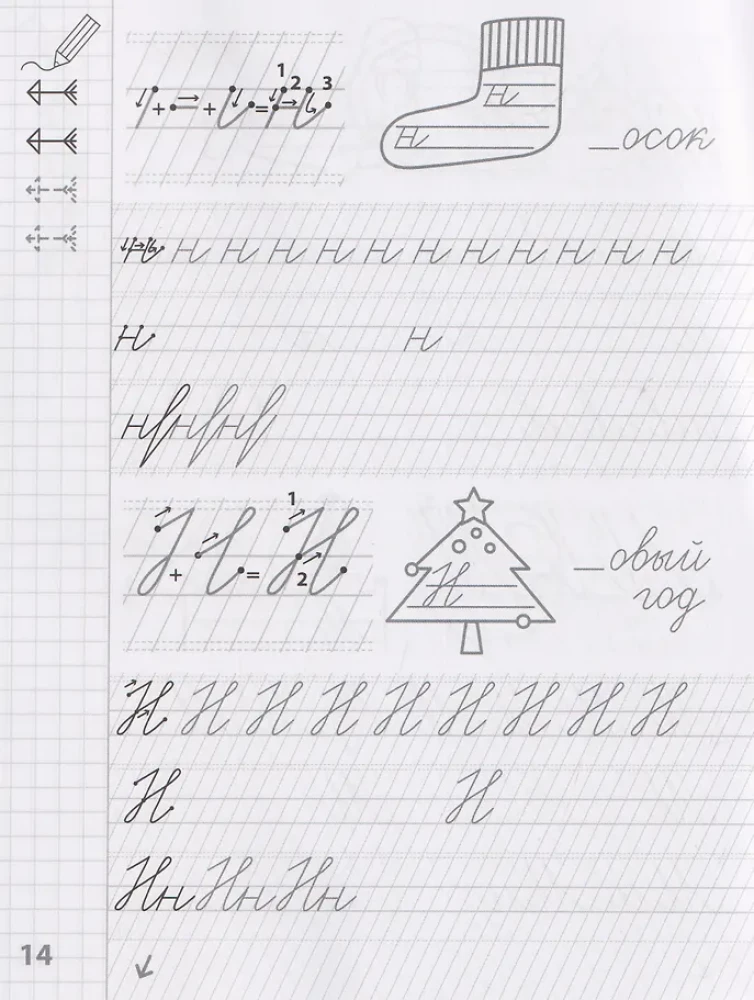 1 2 3
+ + = н
н
н
_осок
н н н н н н н н н н н н
н н
н н н
1
+ = Н
2
Н
_овый
год
Н Н Н Н Н Н Н Н Н
Н Н
Нн Нн Нн
14